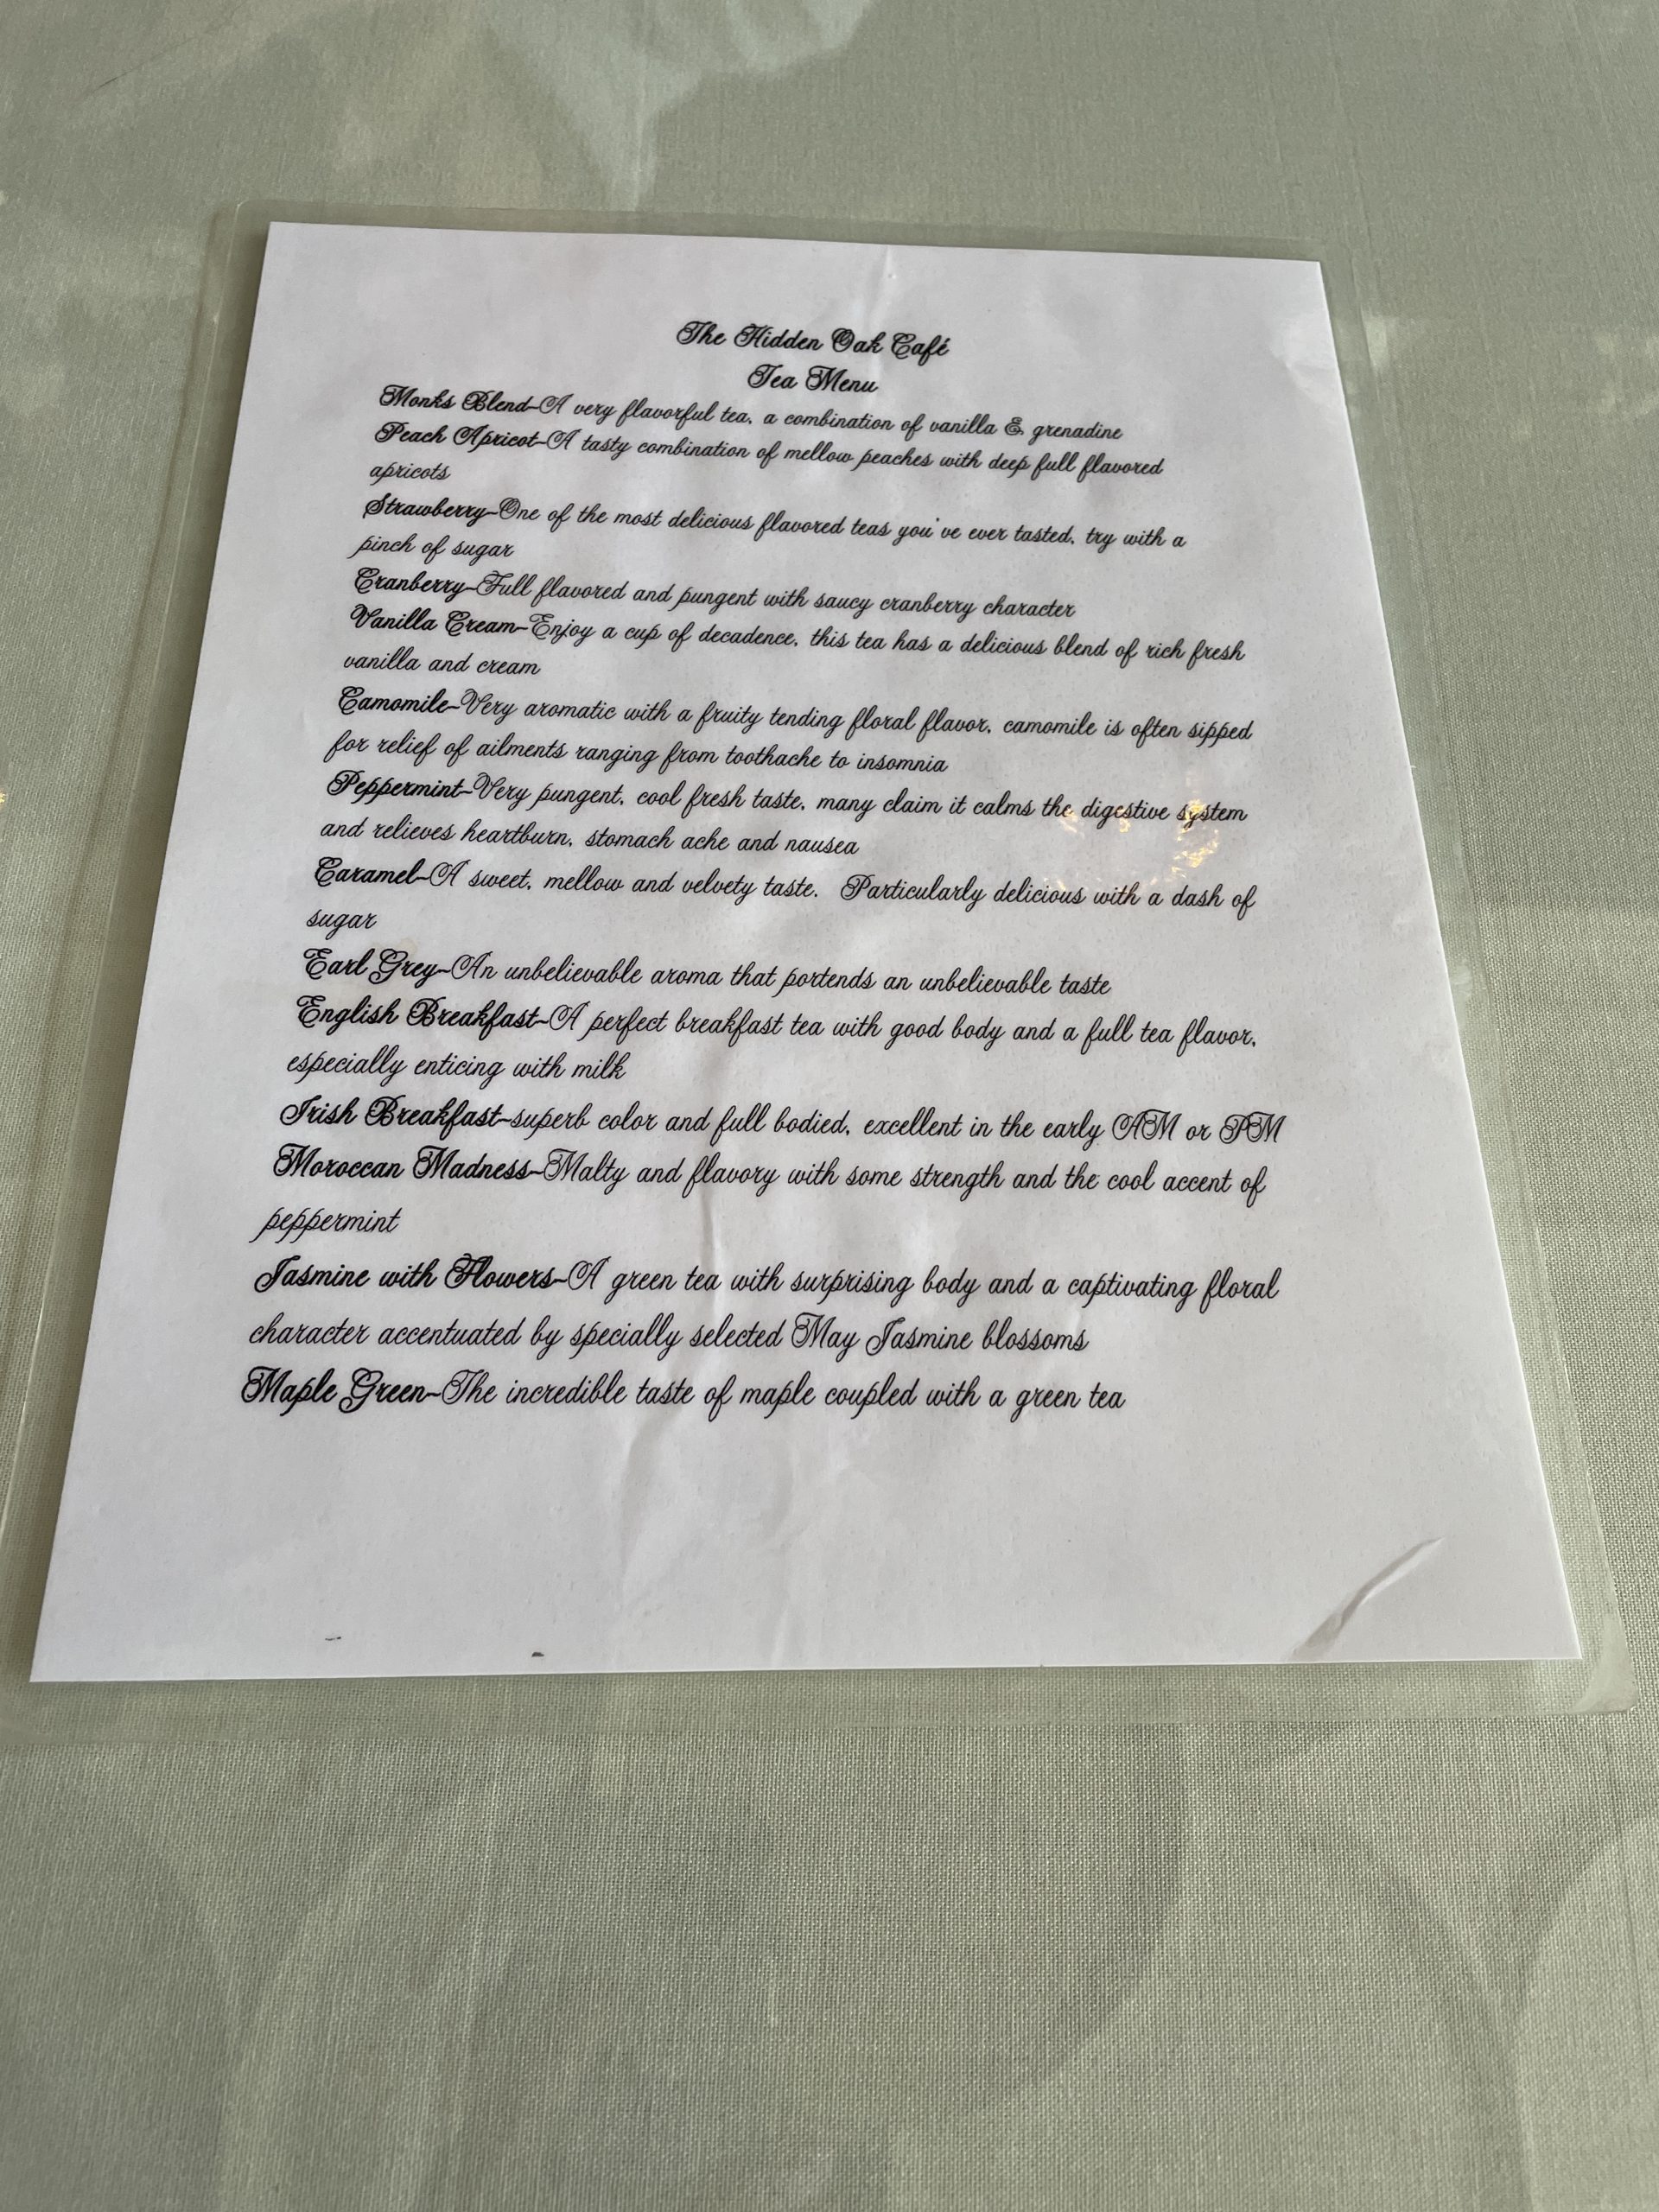 The Hidden Oak Café
Tea Menu
Monks Blend-A very flavorful tea, a combination of vanilla & grenadine
Peach Apricot-A tasty combination of mellow peaches with deep full flavored
apricots
Strawberry-One of the most delicious flavored teas you've ever tasted, try with a
pinch of sugar
Cranberry-Full flavored and pungent with saucy cranberry character
Vanilla Cream-Enjoy a cup of decadence, this tea has a delicious blend of rich fresh
vanilla and cream
Camomile-Very aromatic with a fruity tending floral flavor, camomile is often sipped
for relief of ailments ranging from toothache to insomnia
Peppermint-Very pungent, cool fresh taste, many claim it calms the digestive system
and relieves heartburn, stomach ache and nausea
Caramel-A sweet, mellow and velvety taste.  Particularly delicious with a dash of
sugar
Earl Grey-An unbelievable aroma that portends an unbelievable taste
English Breakfast-A perfect breakfast tea with good body and a full tea flavor,
especially enticing with milk
Irish Breakfast-superb color and full bodied, excellent in the early AM or PM
Moroccan Madness-Malty and flavory with some strength and the cool accent of
peppermint
Jasmine with Flowers-A green tea with surprising body and a captivating floral
character accentuated by specially selected May Jasmine blossoms
Maple Green-The incredible taste of maple coupled with a green tea